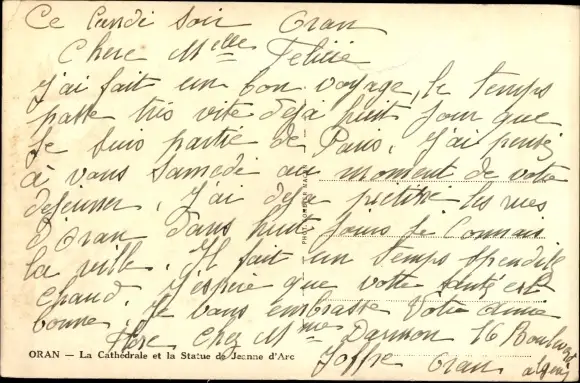 Ce Lundi soir Oran
Chere Melle Felicie
J'ai fait un bon voyage, le temps
passe très vite deja huit jour que
je suis partie de Paris, J'ai pensé
à vous Samedi au moment de votre
dejeuner, J'ai deja pietiné les rues
d'Oran dans huit jours je connais
la ville. Il fait un temps splendide
chaud. J'espère que votre santé est
bonne. Je vous embrasse Votre amie
chez Mme Darmon 16 Boulevard
ORAN — La Cathédrale et la Statue de Jeanne d'Arc
Joffre Oran